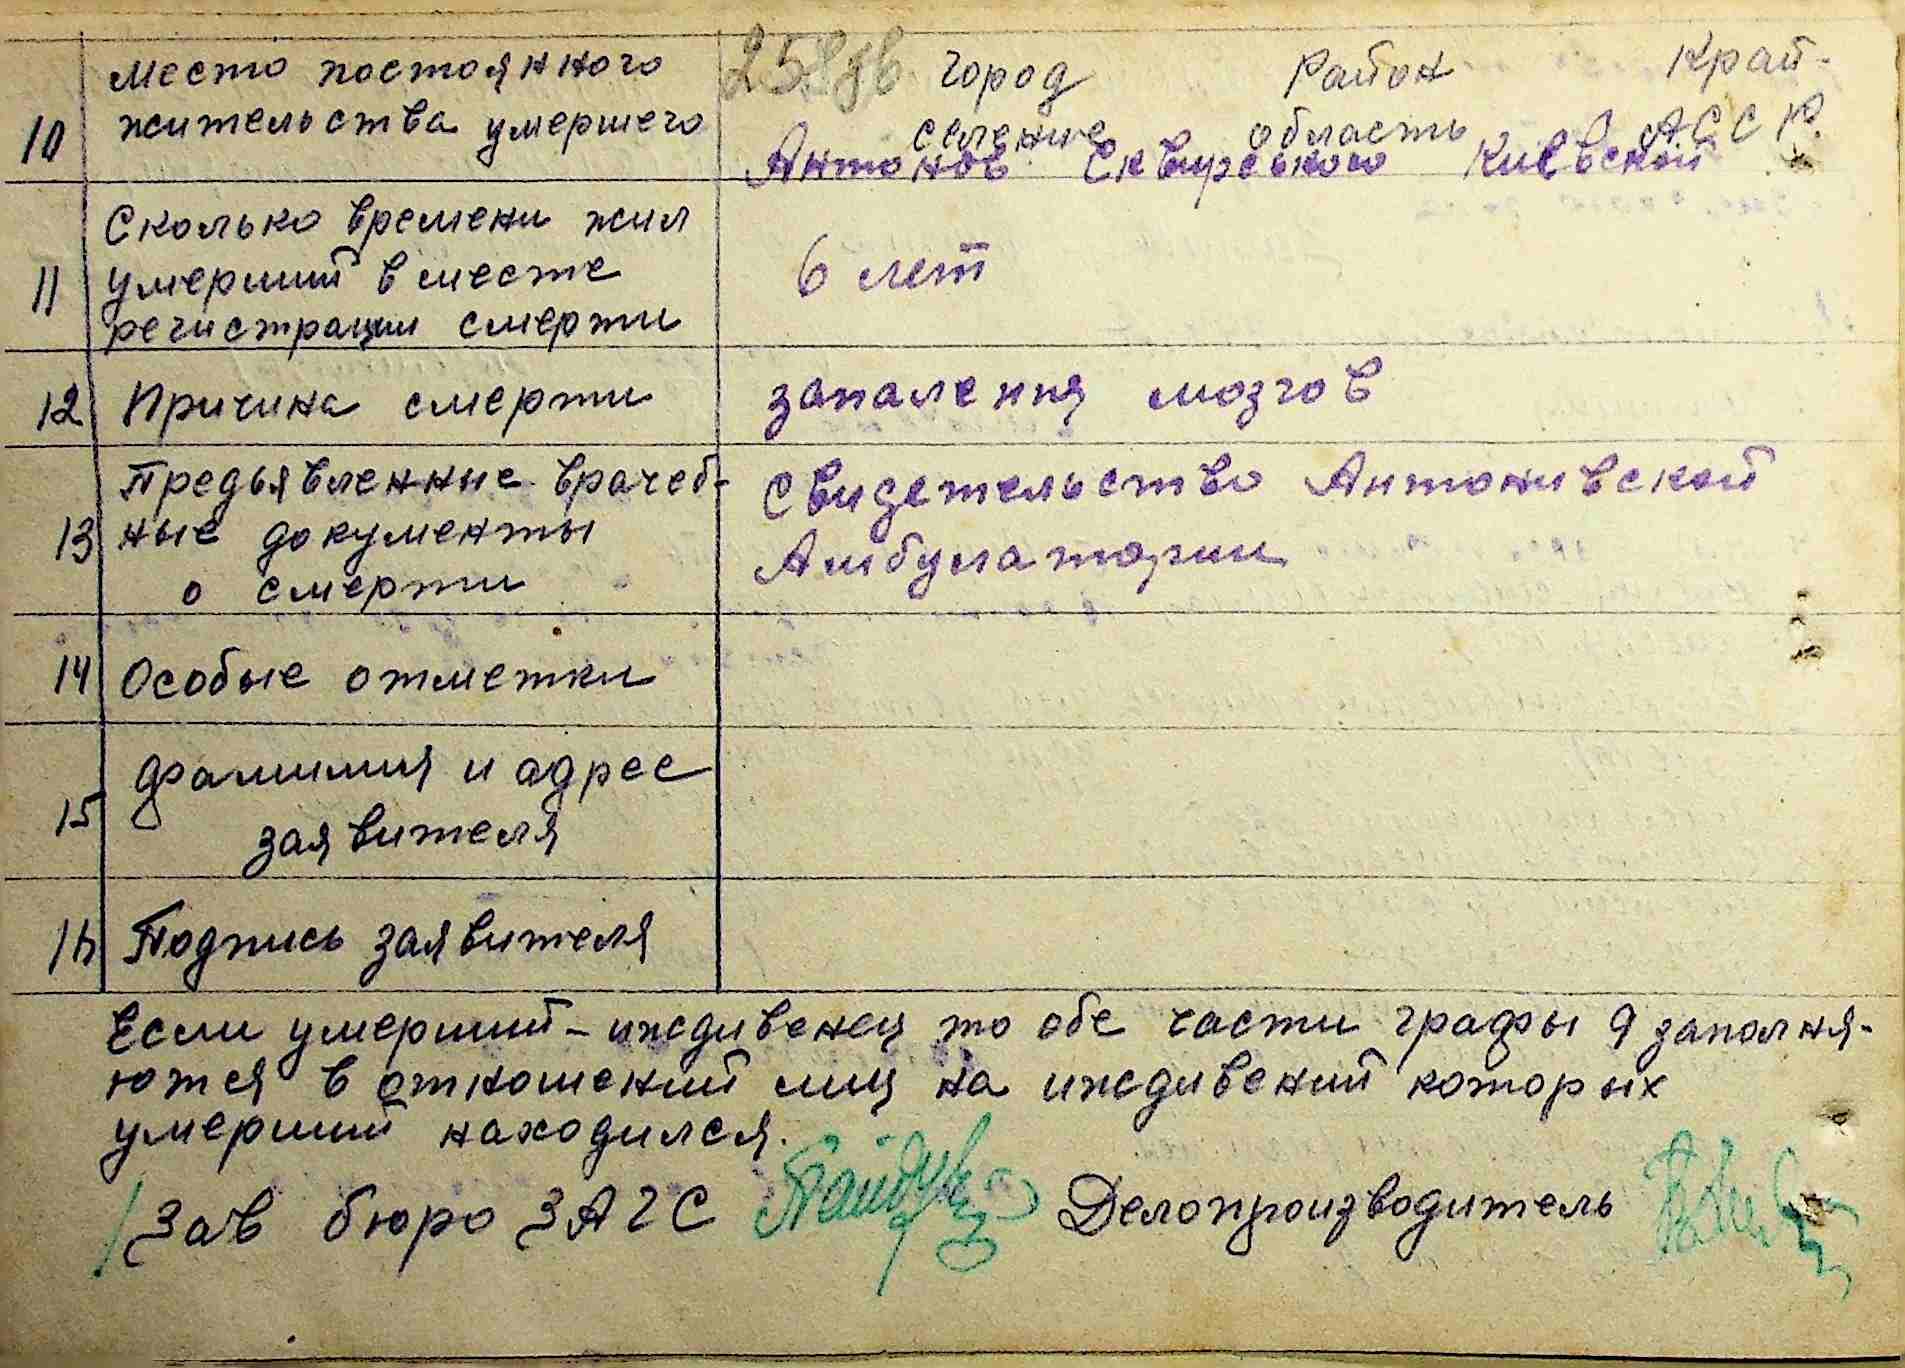 10 Место постоянного жительства умершего
город Район Край-
селение область АССР.
Антонов Сквирського Киевской
11 Сколько времени жил
умерший в месте
регистрации смерти
6 лет
12 Причина смерти
запаления мозгов
13 Предьявленные врачеб-
ные документы
о смерти
Свидетельство Антонивской
Амбулатории
14 Особые отметки
15 Фамилия и адрес
заявителя
16 Подпись заявителя
Если умерший - иждивенец то обе части графы 9 заполня-
ются в отношений лиц на иждивений которых
умерший находился.
Зав бюро ЗАГС Делопроизводитель